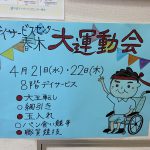 デイサービスセンター
春木 大運動会
4月21日(水)・22日(木)
8階デイサービス
●大玉転し
○綱引き
●玉入れ
○パン食い競争
●鑑賞競技